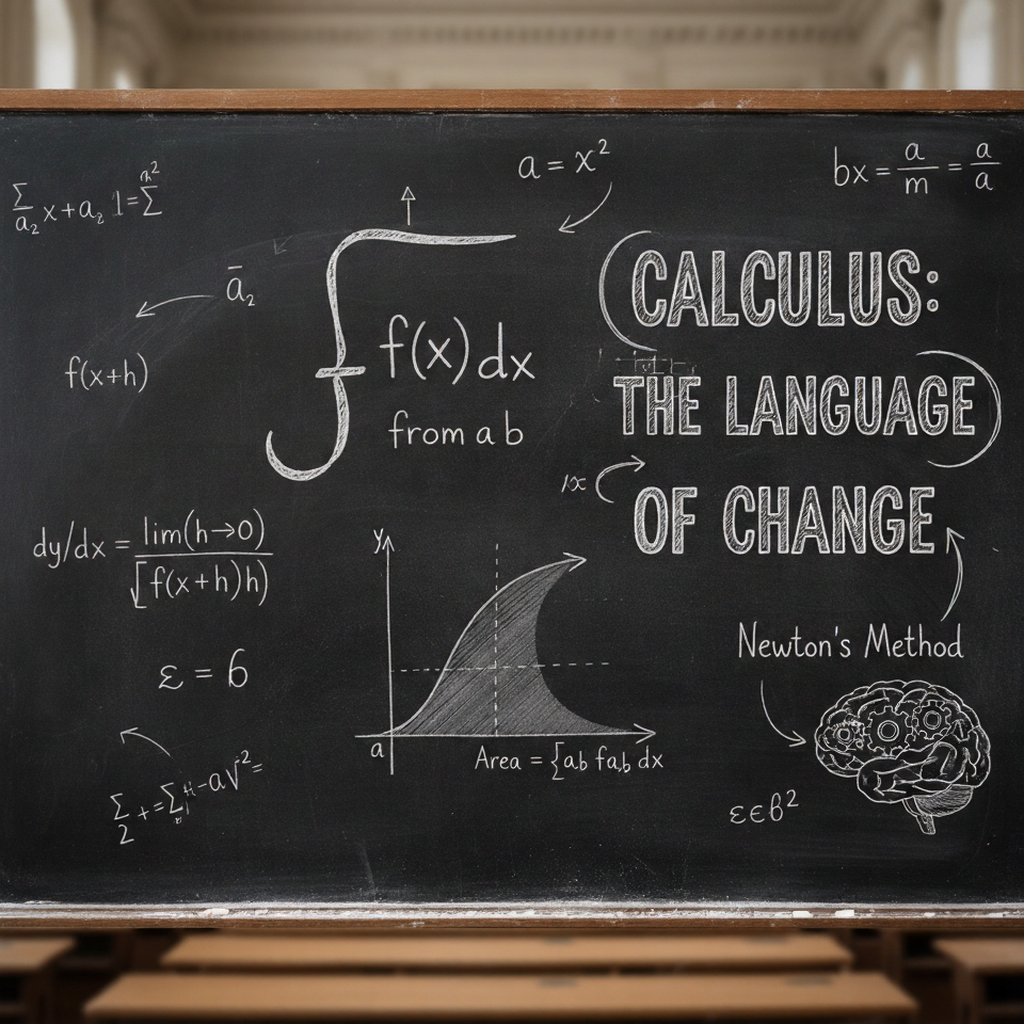 a = x²
bx = a/m = a/a
ā₂
f(x+h)
∫ f(x) dx
from a b
CALCULUS:
THE LANGUAGE
OF CHANGE
dy/dx = lim(h→0) / √f(x+h)h)
ε = 6
y
a
Area = {ab fa,b dx
Newton's Method
εεβ²